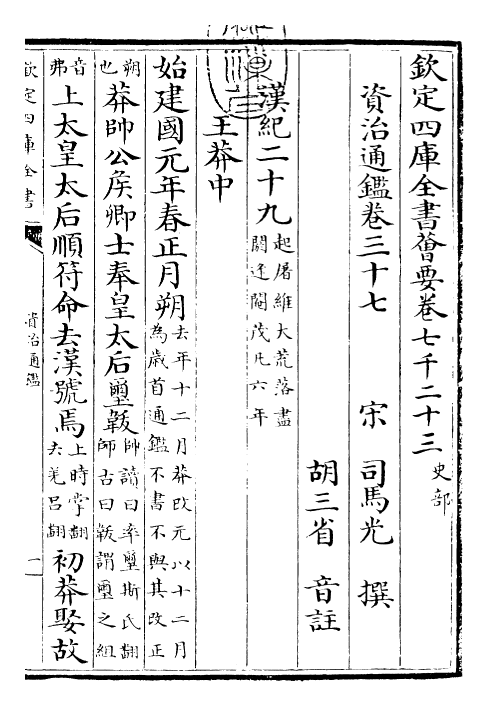 欽定四庫全書薈要卷七千二十三 史部
資治通鑑卷三十七
宋 司馬光 撰
胡三省 音註
漢紀二十九 起屠維大荒落盡閼逢閹茂凡六年
王莽中
始建國元年春正月朔 去年十二月莽改元以十二月為歲首通鑑不書不與其改正
朔也 莽帥公侯卿士奉皇太后璽韍 帥讀曰率璽斯氏翻師古曰韍謂璽之組
音弗 上太皇太后順符命去漢號焉 上時掌翻去羌呂翻 初莽娶故
欽定四庫全書
資治通鑑
一